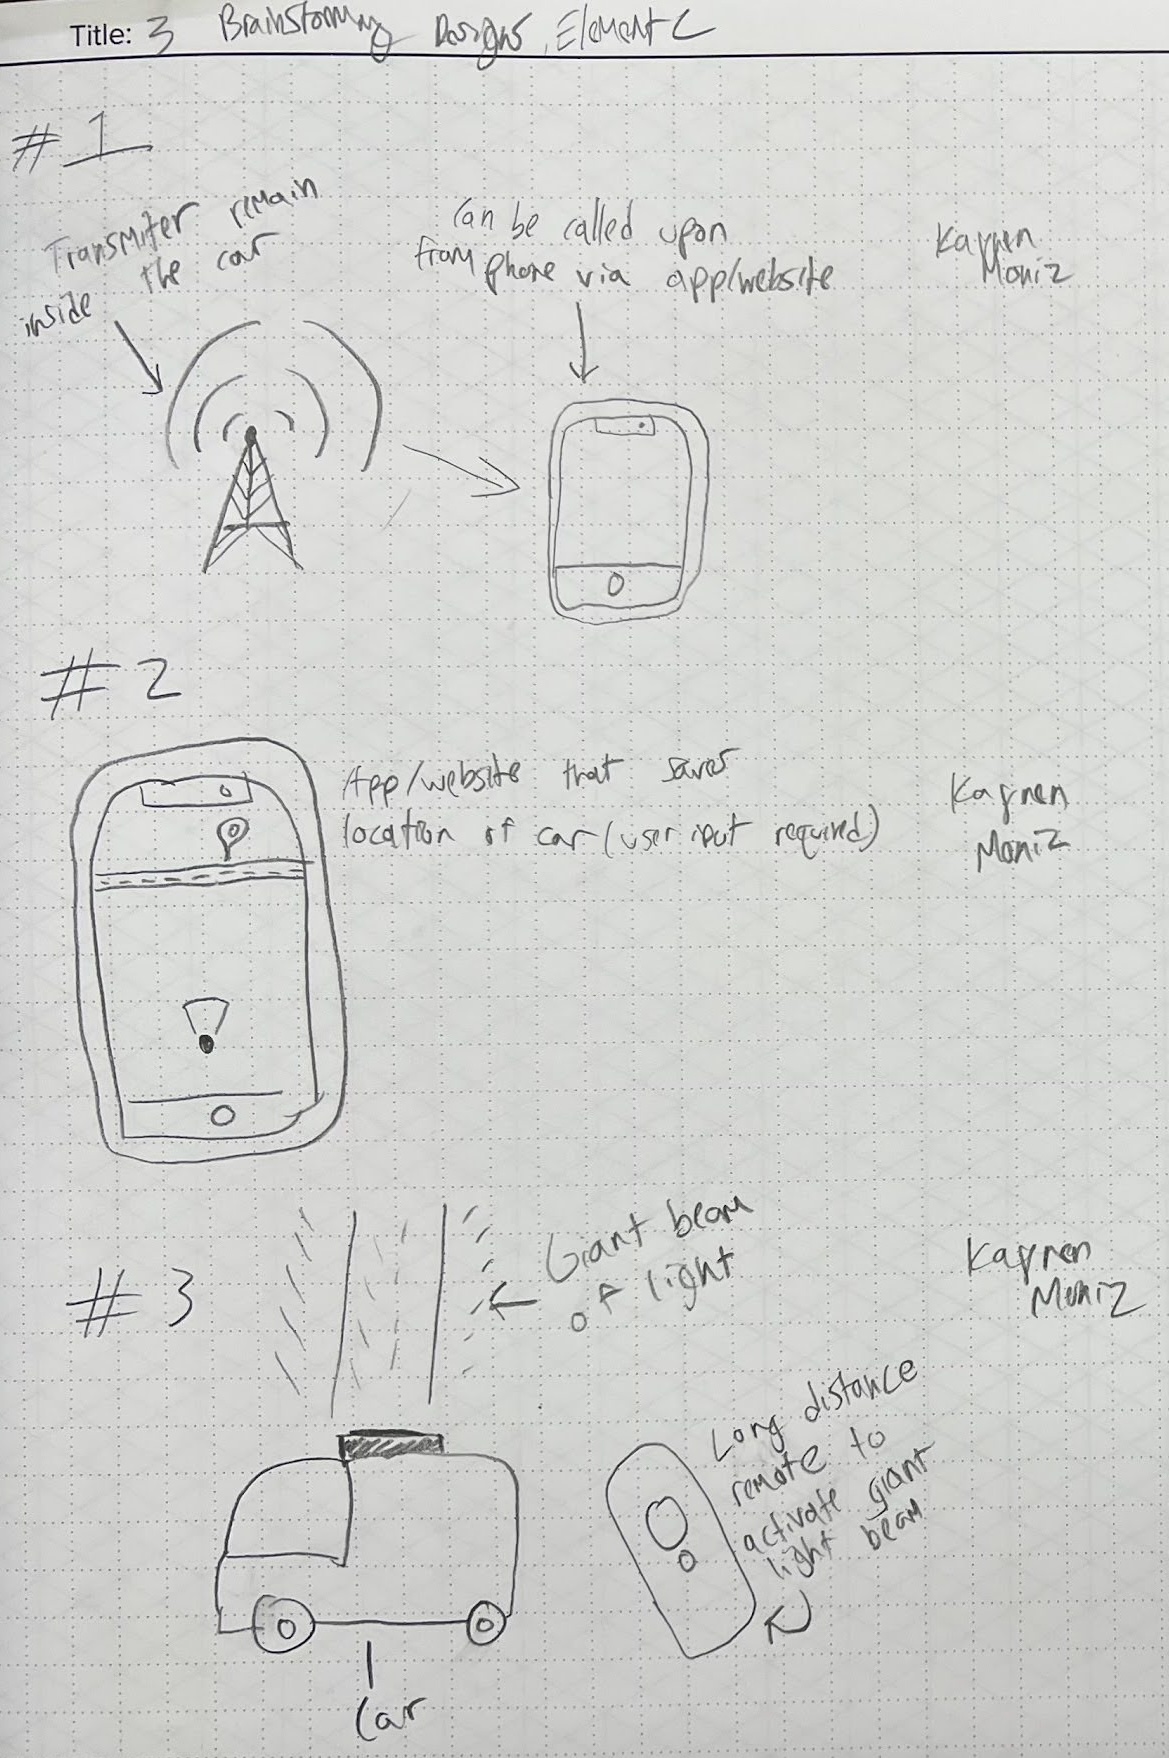 Title: 3 Brainstorming Designs, Element C
#1
Transmiter remain
inside the car
Can be called upon
from phone via app/website
Kaynen
Moniz
#2
App/website that saves
location of car (user input required)
Kaynen
Moniz
#3
Giant beam
of light
Kaynen
Moniz
Long distance
remote to
activate giant
light beam
Car